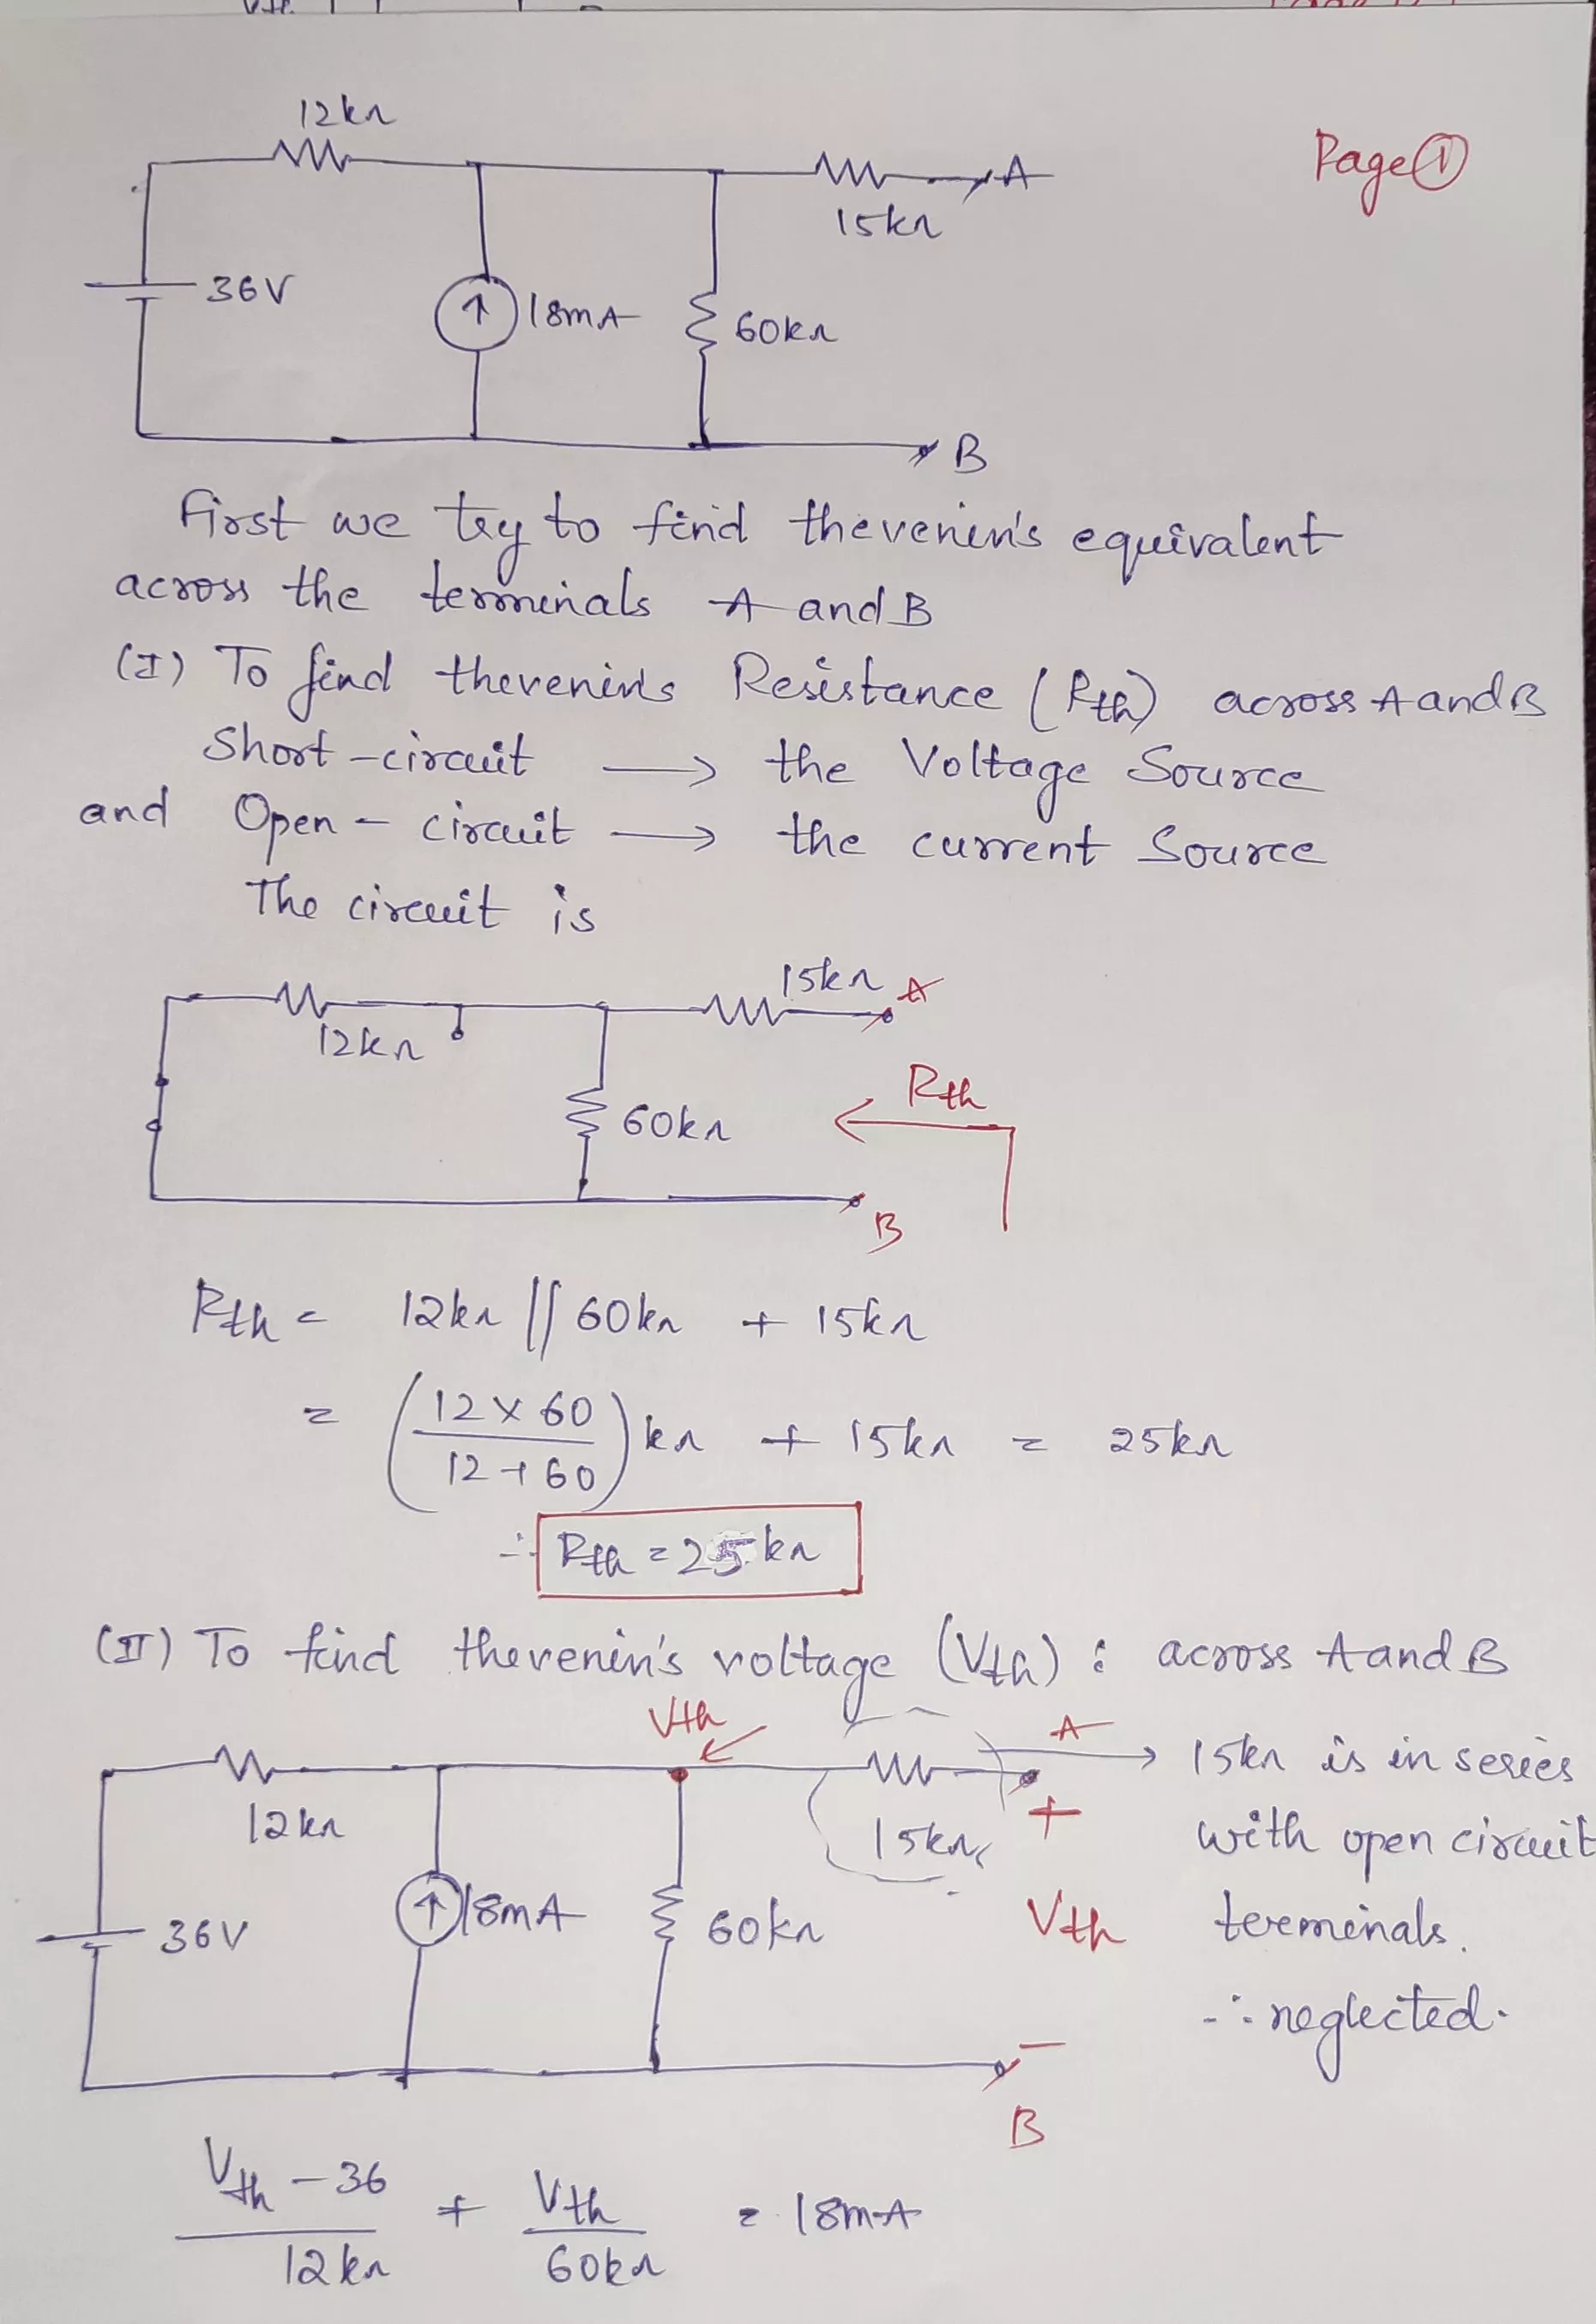 Page ①
12kΩ
15kΩ
A
36V
18mA
60kΩ
B
First we try to find thevenin's equivalent
across the terminals A and B
(I) To find thevenin's Resistance (Rth) across A and B
Short-circuit → the Voltage Source
and Open-circuit → the current Source
The circuit is
15kΩ A
12kΩ
Rth
60kΩ
B
Rth = 12kΩ || 60kΩ + 15kΩ
= (12 × 60 / 12 + 60) kΩ + 15kΩ = 25kΩ
∴ Rth = 25kΩ
(II) To find thevenin's voltage (Vth) : across A and B
Vth
A
→ 15kΩ is in series
12kΩ
15kΩ
+
with open circuit
36V
18mA
60kΩ
Vth
terminals.
∴ neglected.
−
B
Vth − 36 / 12kΩ + Vth / 60kΩ = 18mA